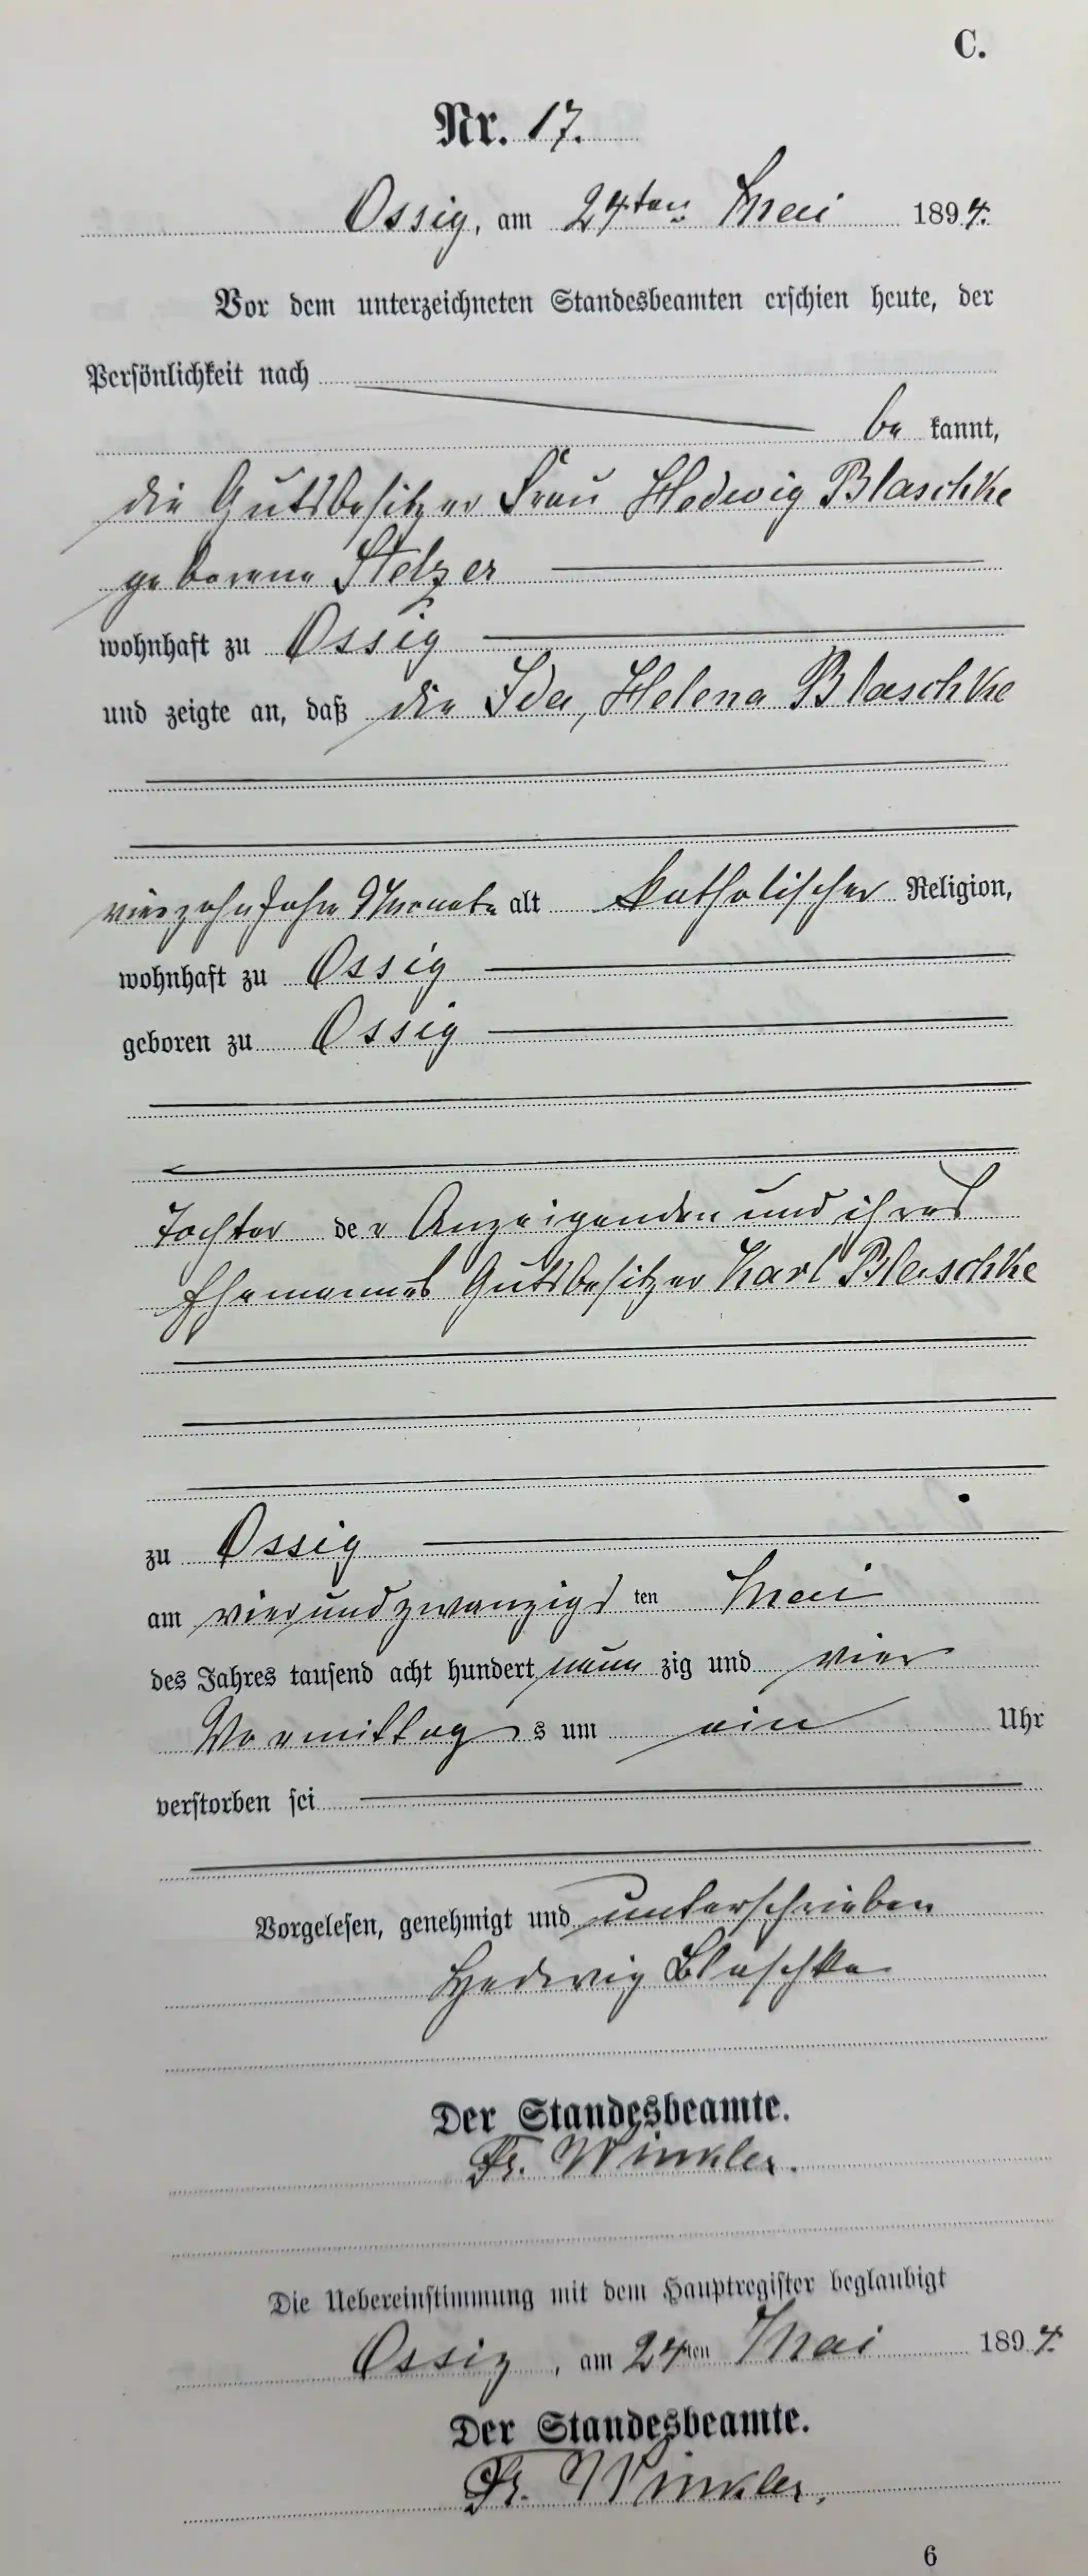 C.
Nr. 17.
Ossig, am 24ten Mai 1894.
Vor dem unterzeichneten Standesbeamten erschien heute, der
Persönlichkeit nach
be kannt,
die Gutsbesitzer Frau Hedwig Blaschke
geborene Stelzer
wohnhaft zu Ossig
und zeigte an, daß die Ida, Helena Blaschke
vierzehn Jahre 9 Monate alt katholischer Religion,
wohnhaft zu Ossig
geboren zu Ossig
Tochter der Anzeigenden und ihres
Ehemannes Gutsbesitzer Karl Blaschke
zu Ossig
am vierundzwanzigs ten Mai
des Jahres tausend acht hundert neun zig und vier
Vormittag s um ein Uhr
verstorben sei
Vorgelesen, genehmigt und unterschrieben
Hedwig Blaschke
Der Standesbeamte.
Fr. Winkler.
Die Uebereinstimmung mit dem Hauptregister beglaubigt
Ossig, am 24ten Mai 1894.
Der Standesbeamte.
Fr. Winkler.
6